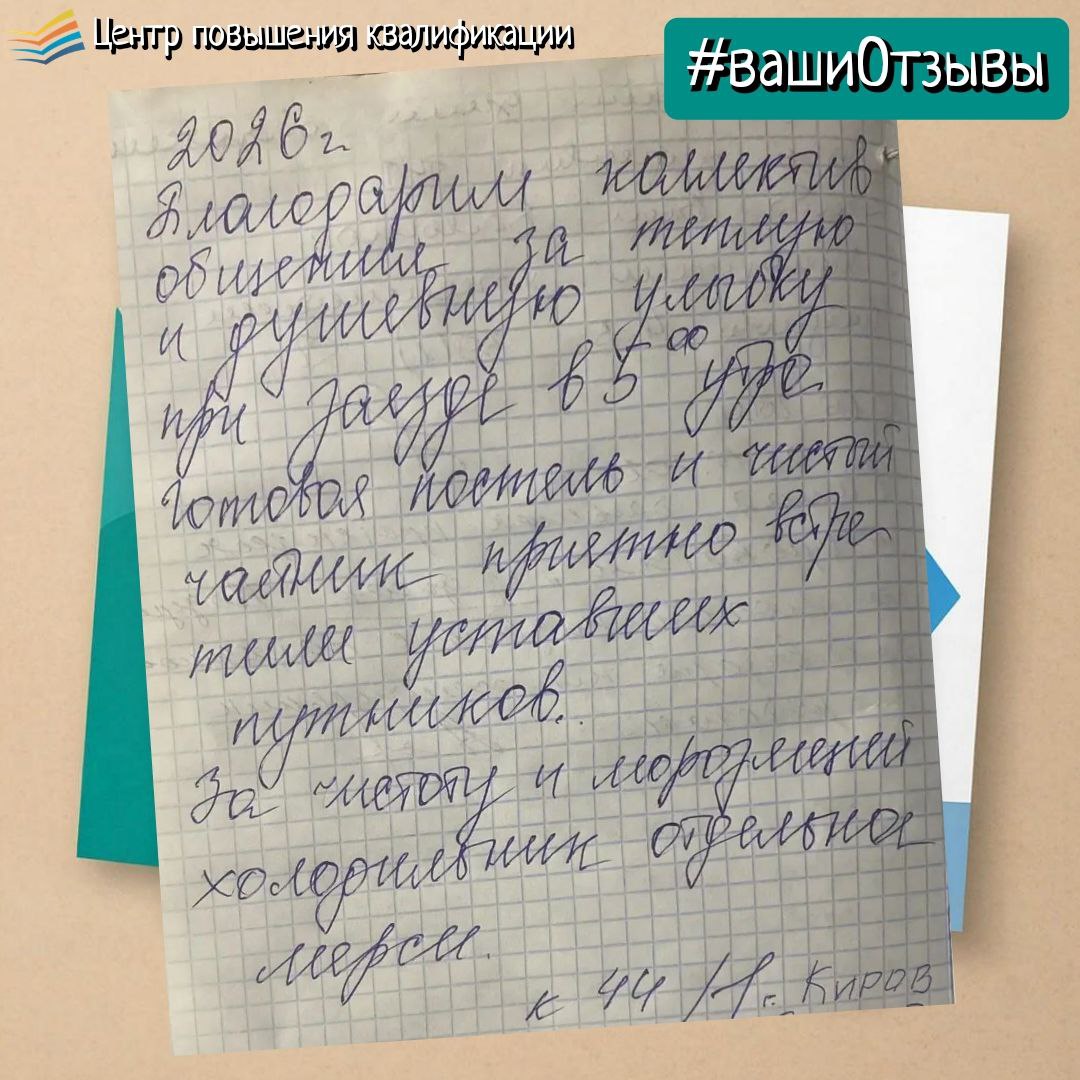 Центр повышения квалификации
#вашиОтзывы
2026 г
Благодарим коллектив
общения за теплую
и душевную улыбку
при заезде в 5 00 утра
готовая постель и чистый
чайник приятно встре
тили уставших
путников.
За чистоту и морозмений
холодильник отдельное
мерси.
к 44 /1 г. Киров